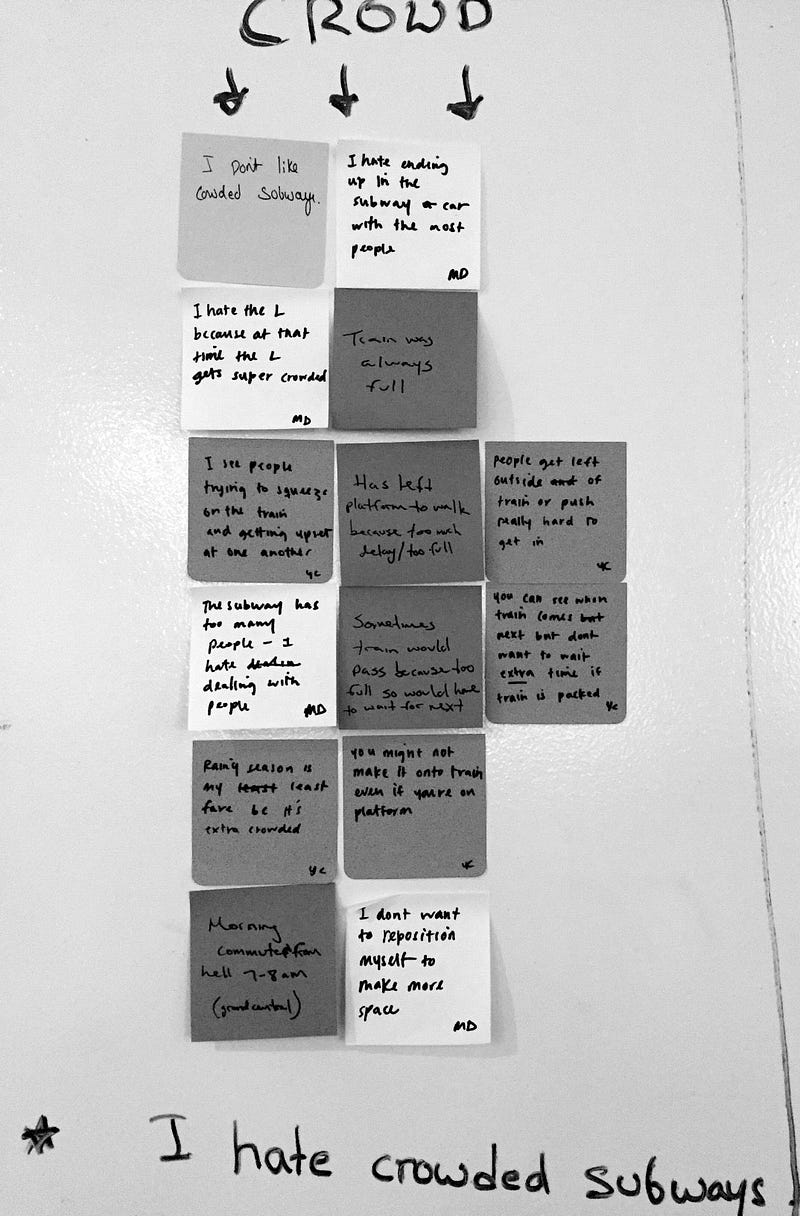 CROWD
I Don't like
Crowded Subways.
I hate ending
up in the
subway car
with the most
people
MD
I hate the L
because at that
time the L
gets super crowded
MD
Train was
always
full
I see people
trying to squeeze
on the train
and getting upset
at one another
YC
Has left
platform to walk
because too much
delay/too full
people get left
outside and of
train or push
really hard to
get in
YC
The subway has
too many
people - I
hate
dealing with
people
MD
Sometimes
train would
pass because too
full so would have
to wait for next
you can see when
train comes but
next but dont
want to wait
extra time if
train is packed
YC
Rainy season is
my least least
fave bc it's
extra crowded
YC
you might not
make it onto train
even if you're on
platform
YC
Morning
commute from
hell 7-8am
(grand central)
I dont want
to reposition
myself to
make more
space
MD
★ I hate crowded subways.